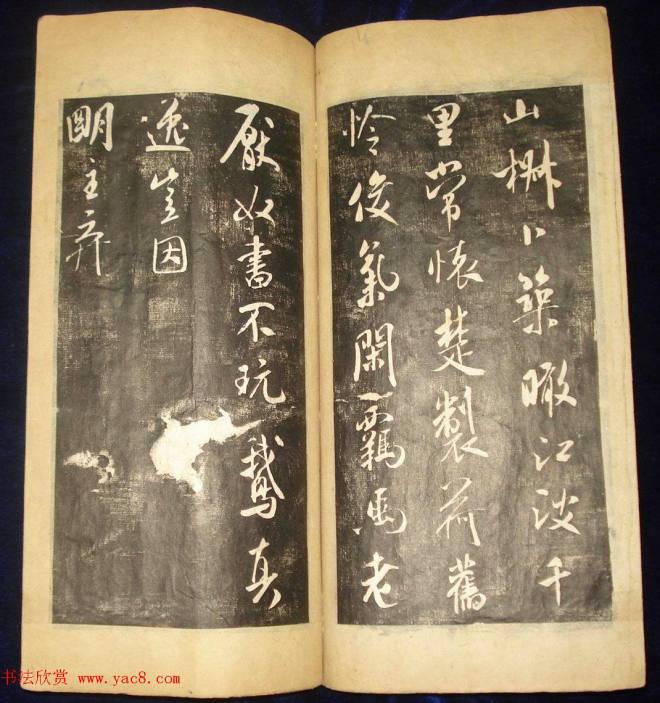 山椒卜築瞰江波千
里常懷楚製荷舊
怜俊氣閑羈馬老
厭奴書不玩鵝真
逸豈因
朙主弃
书法欣赏 www.yac8.com